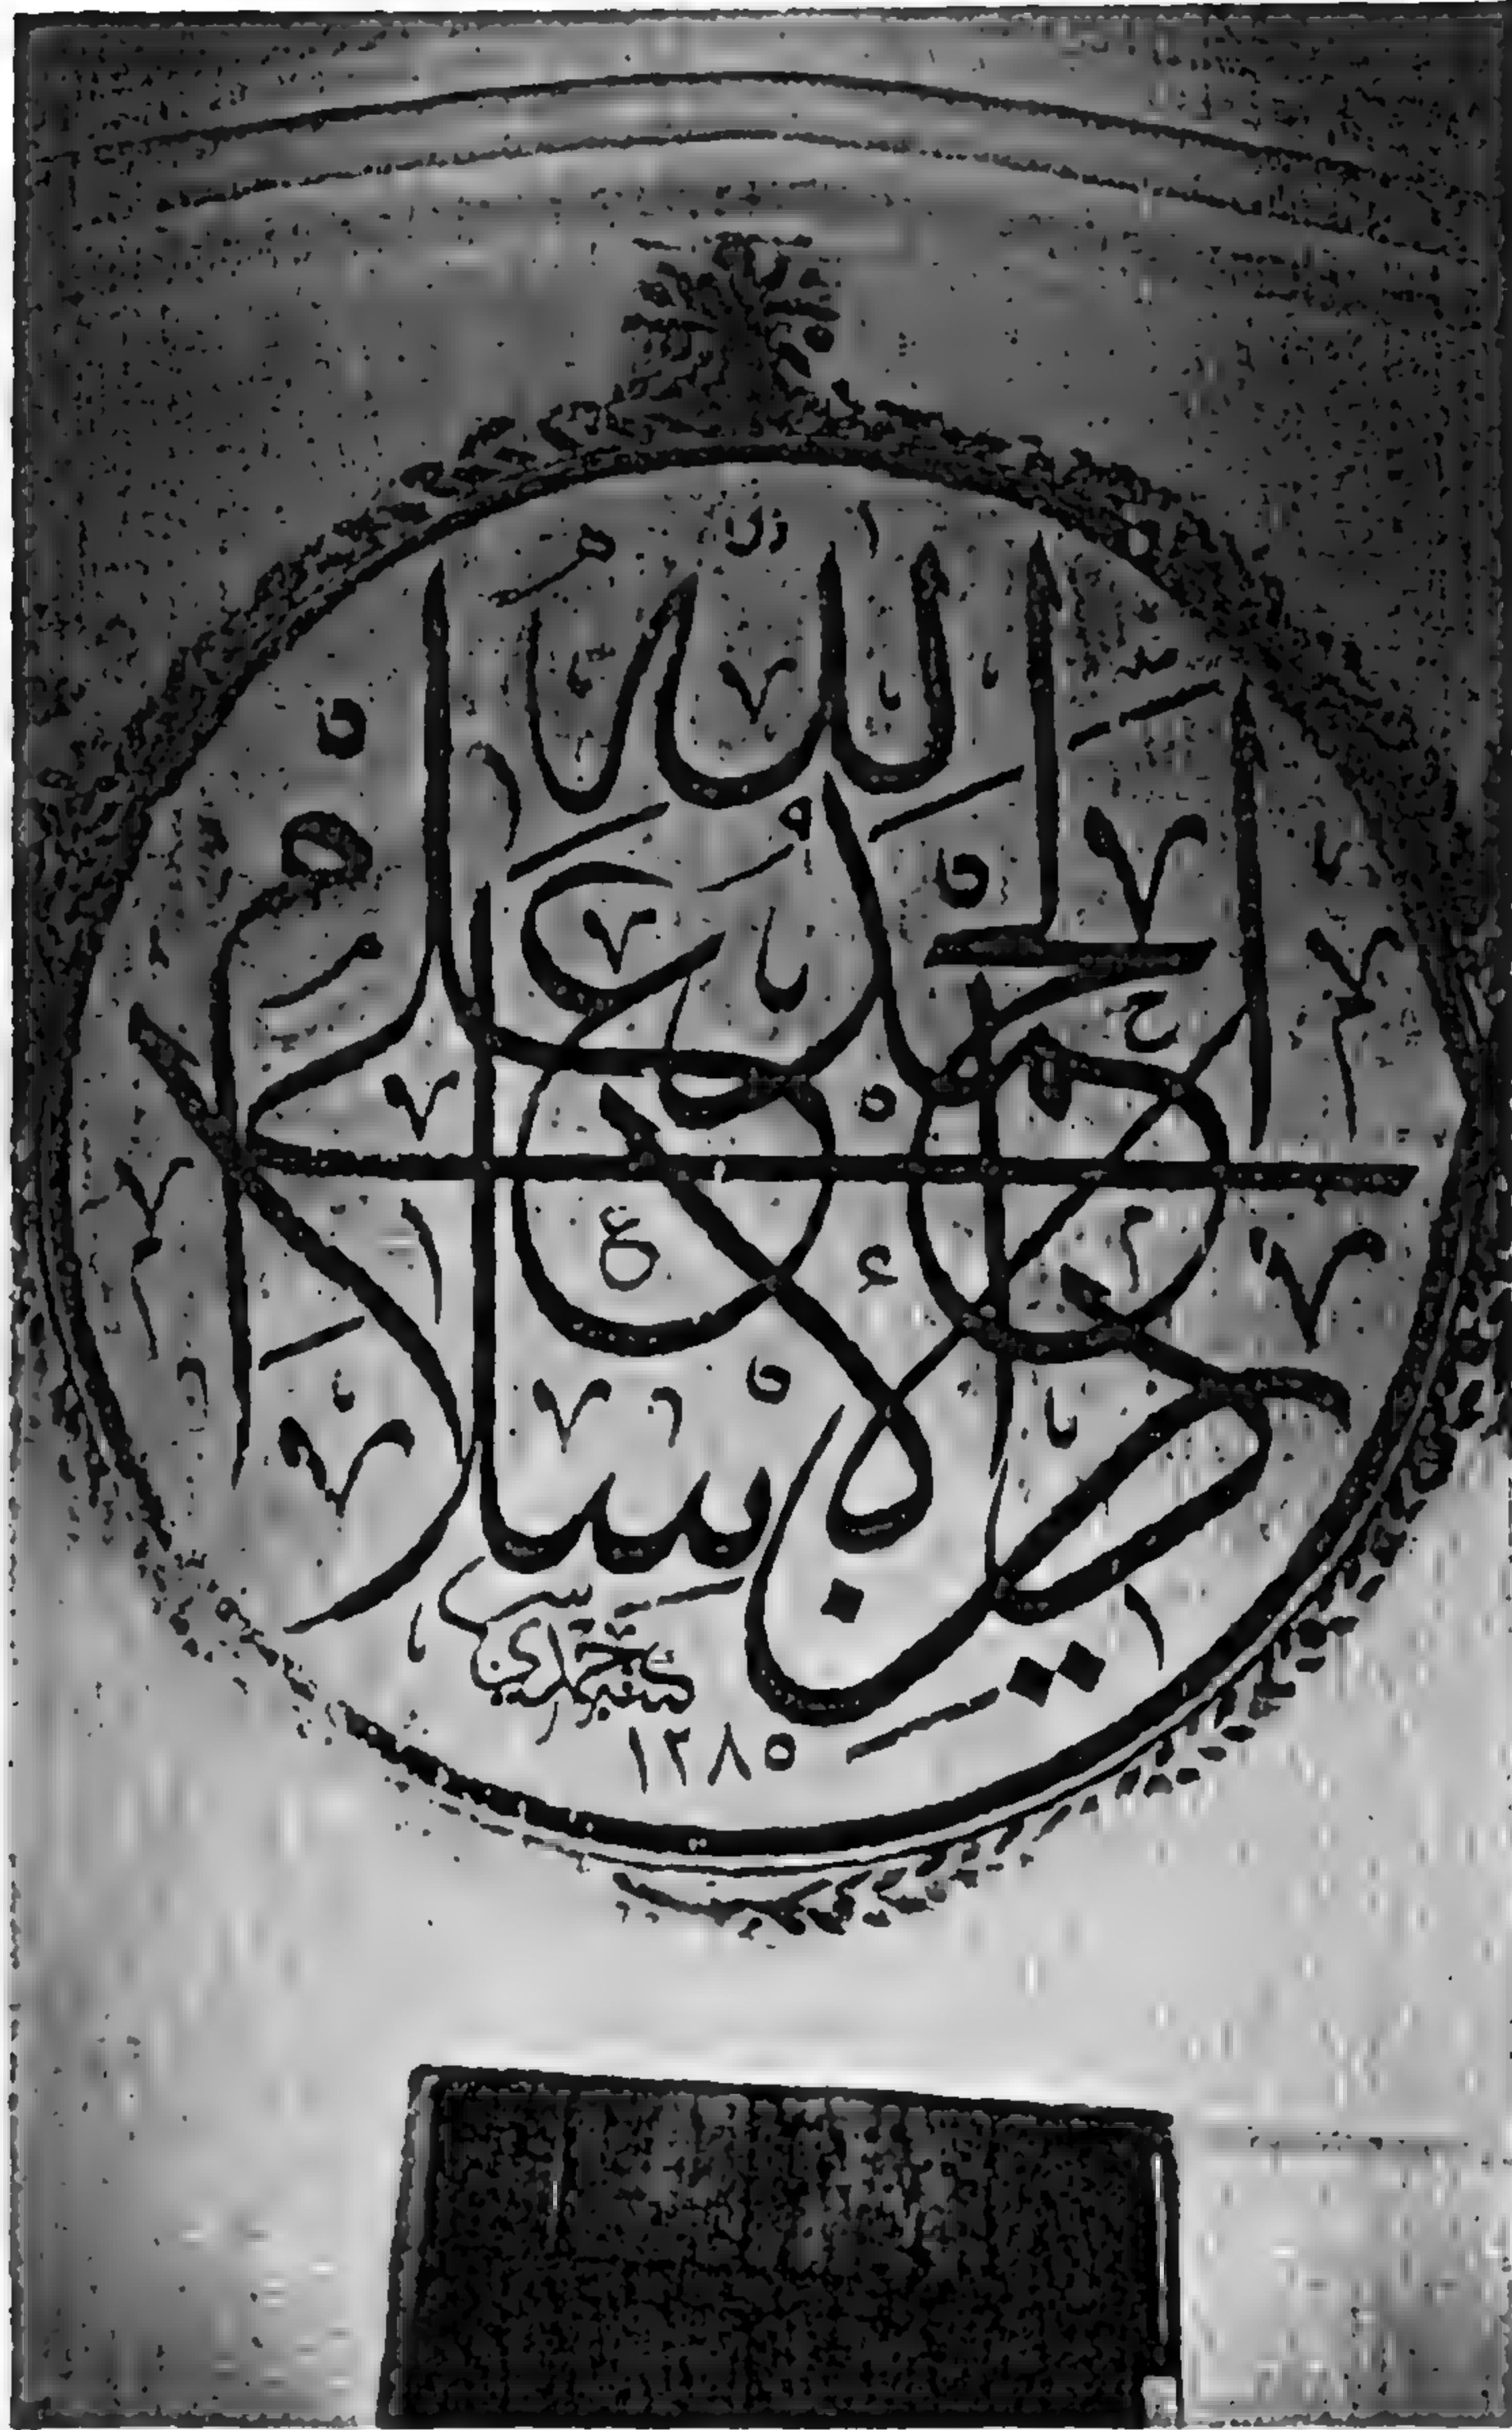 الحمد لله على دين الاسلام
١٢٨٥